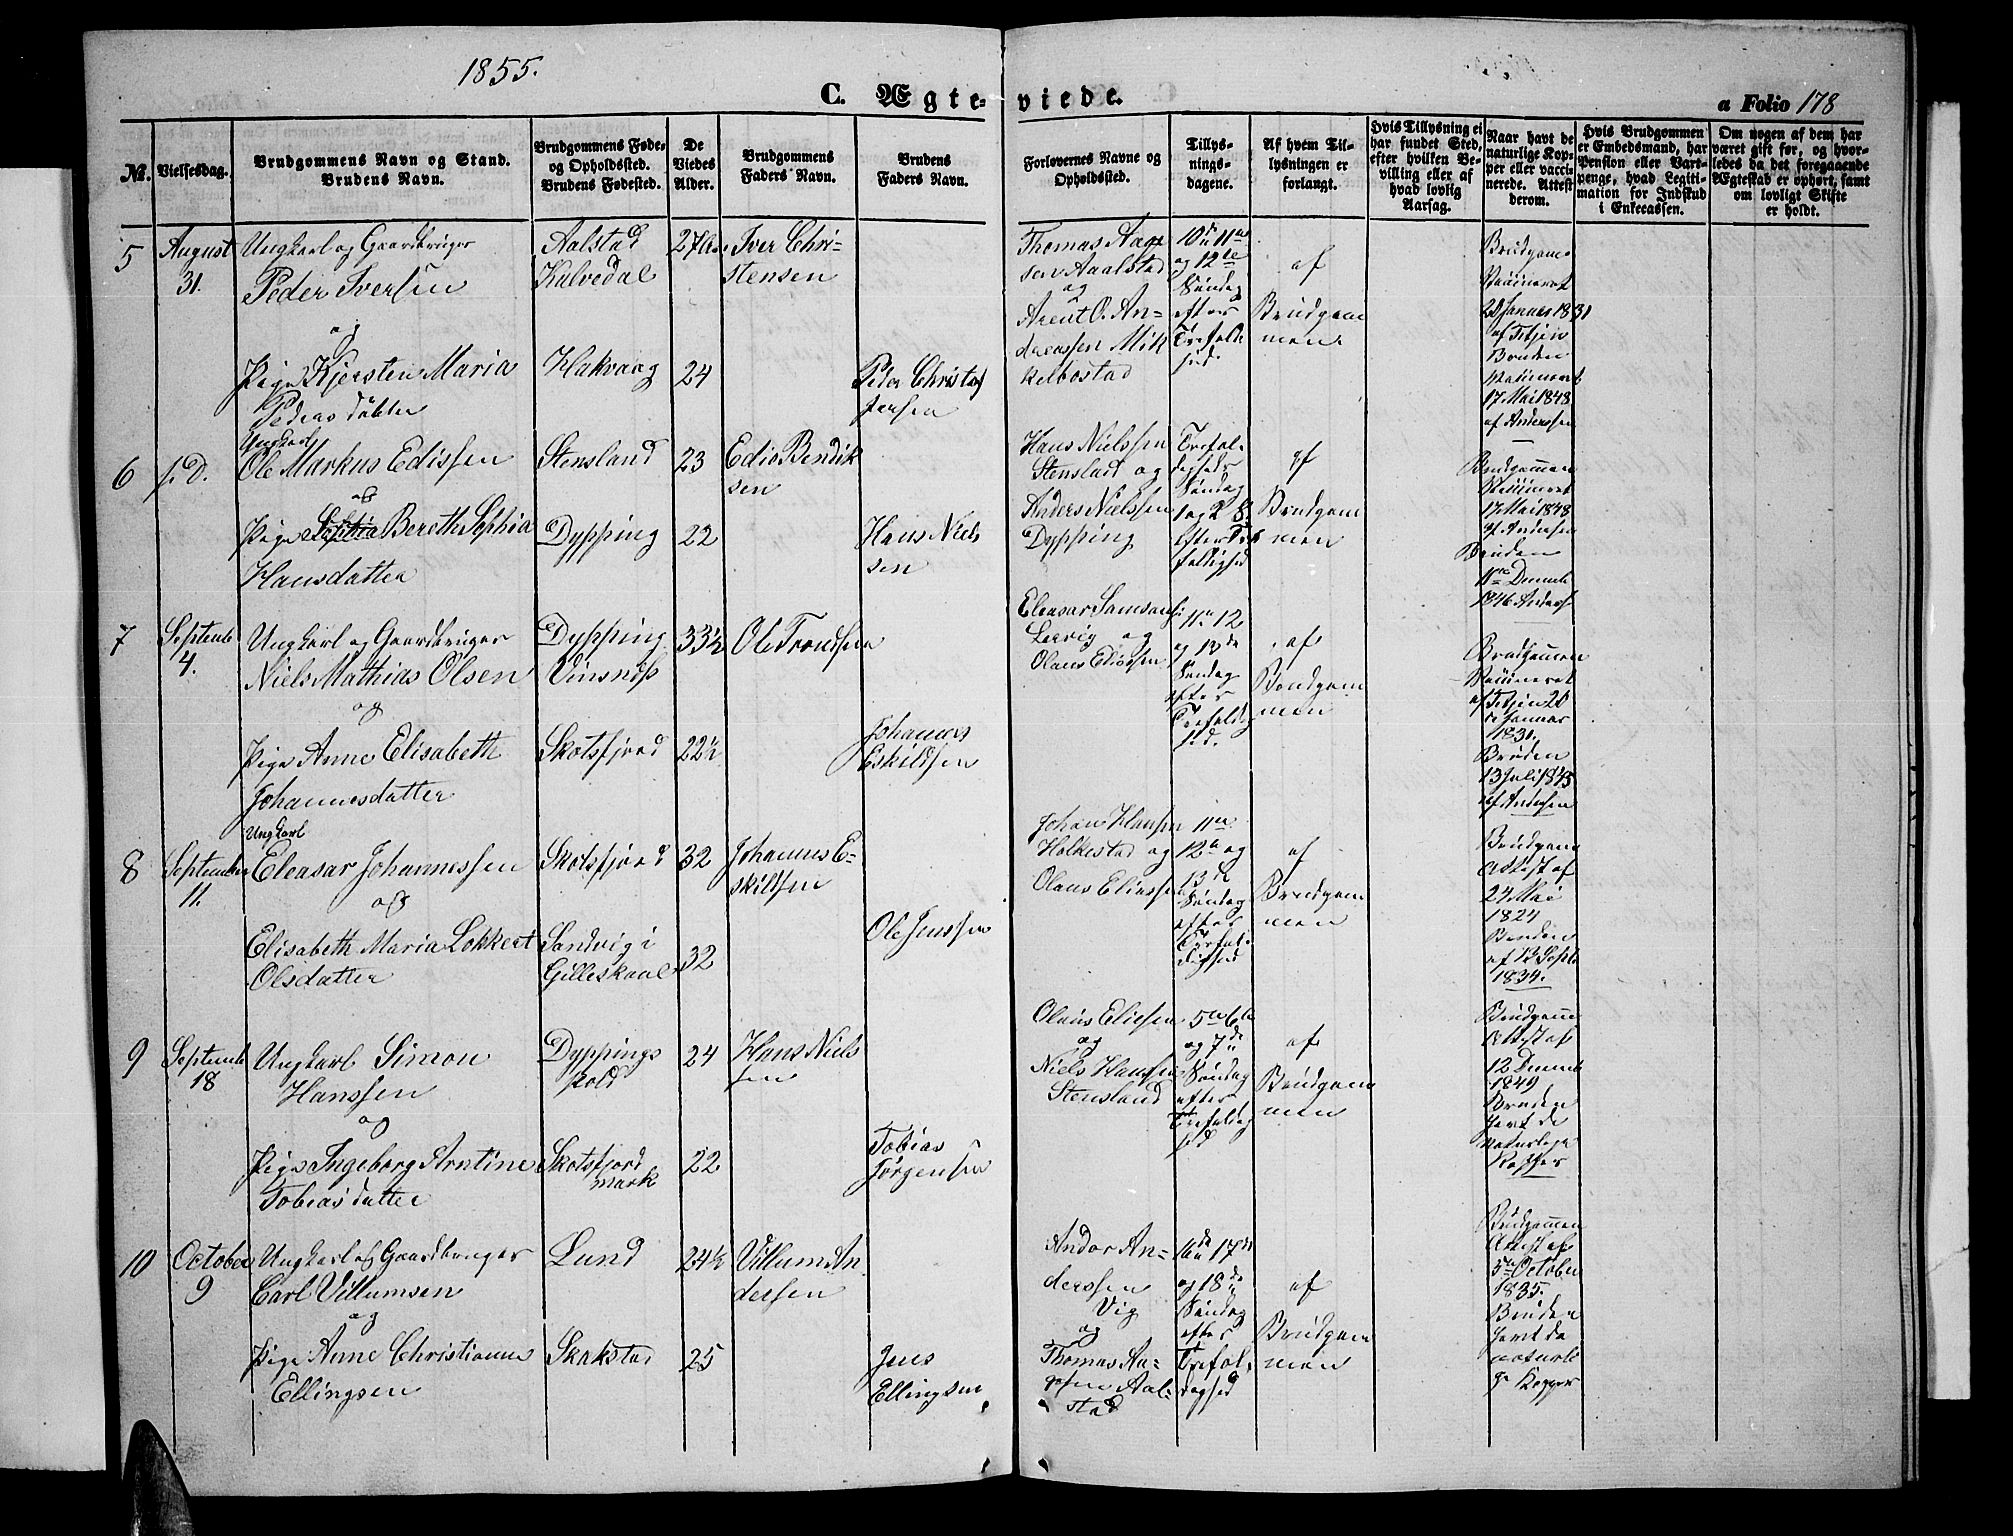 1855.
C. Ægte-
viede.
a Folio 178
No.
Vielsesdag.
Brudgommens Navn og Stand.
Brudens Navn.
Brudgommens Føde-
og Opholdssted.
Brudens Fødested.
De
Viedes
Alder.
Brudgommens
Faders Navn.
Brudens
Faders Navn.
Forlovernes Navne og
Opholdssted.
Tillys-
nings-
dagene.
Af hvem Til-
lysningen er
forlangt.
Hvis Tillysning ei
har fundet Sted,
efter hvilken Be-
villing eller af
hvad lovlig
Aarsag.
Naar havt de
naturlige Kop-
per eller vacci-
nerede. Attest
derom.
Hvis Brudgommen
er Embedsmand, har
Pension eller Vart-
penge, hvad Legiti-
mation for Indskud
i Enkecassen.
Om nogen af dem har
været gift før, og hvor-
ledes da det foregaaende
Ægteskab er ophørt, samt
om lovligt Skifte
er holdt.
5
August
31.
Ungkarl og Gaardbruger
Peder Iversen
og
Pige Kjersten Maria
Pedersdatter
Aalstad
Kalvedal
Hakvaag
27
24
Iver Chri-
stensen
Peder Christof
fersen
Thomas Aage
sen Aalstad
og
Arent O. An-
dreassen Mik
kelbostad
10de 11te
og 12te
Søndag
efter
Trefoldig
hed
af
Brudgom
men
Brudgom
Vaccineret
20 Januar 1831
af Tetjen
Bruden
Vaccineret
17 Mai 1848
af Anderssen
6
s. D.
Ungkarl
Ole Markus Edissen
og
Pige Sophia Bereth Sophia
Hansdatter
Stensland
Dypping
23
22
Edis Bendik
sen
Hans Niels
sen
Hans Nielssen
Stenslad og
Anders Nielssen
Dypping
Trefol-
digheds
Søndag
1 og 2 S.
efter Tre
foldighed
af
Brudgom
men
Brudgommen
Vaccineret
17 Mai 1848
af Andersen
Bruden
11te Decemb
1846 Anders
7
Septemb
4.
Ungkarl og Gaardbruger
Niels Mathias Olsen
og
Pige Anne Elisabeth
Johannesdatter
Dypping
Vinsnes
Skotsfjord
33½
22½
Ole Trondsen
Johannes
Eskildsen
Eleasar Samsons
Leervig og
Olaus Eliassen
11te 12
og 13de
Søndag
efter
Trefoldig
hed.
af
Brudgom
men
Brudgommen
Vaccineret
af Tetjen 20
Januar
1831.
Bruden
13 Juli 1845
af Andersen
8
September
11.
Ungkarl
Eleasar Johannessen
og
Elisabeth Maria Lokkert
Olsdatter
Skotsfjord
Sandvig i
Gilleskaal
32
32
Johannes E-
skildsen
Ole Jenssen
Johan Hansen
Holkestad og
Olaus Eliassen
11te
12te og
13de
Søndag
efter
Trefol-
dighed
af
Brudgom
men
Brudgom
Attest af
24 Mai
1824
Bruden
af 13 Septb
1834.
9
Septemb
18
Ungkarl Simon
Hanssen
og
Pige Ingeborg Arntine
Tobiasdatter
Dyppings
pold
Skotsfjord
mark
24
22
Hans Niels
sen
Tobias
Jørgensen
Olaus Eliesen
og
Niels Hanssen
Stensland
5te 6te
og 7de
Søndag
efter
Trefoldig
hed
af
Brudgom
men
Brudgom
Attest af
12 Decemb
1849
Bruden
havt de
naturlige
Kopper
10
October
9
Ungkarl og Gaardbruger
Carl Villumsen
og
Pige Anne Christianne
Ellingsen
Lund
Skakstad
24½
25
Villum An
dersen
Jens
Ellingsen
Andor An-
derssen
Vig
og
Thomas Aa-
gesen Aal-
stad
16de 17de
og 18de
Søndag
efter
Trefol-
dighed
af
Brudgom
men
Brudgommen
Attest af
5te October
1835.
Bruden
havt de
naturli
ge Kopper